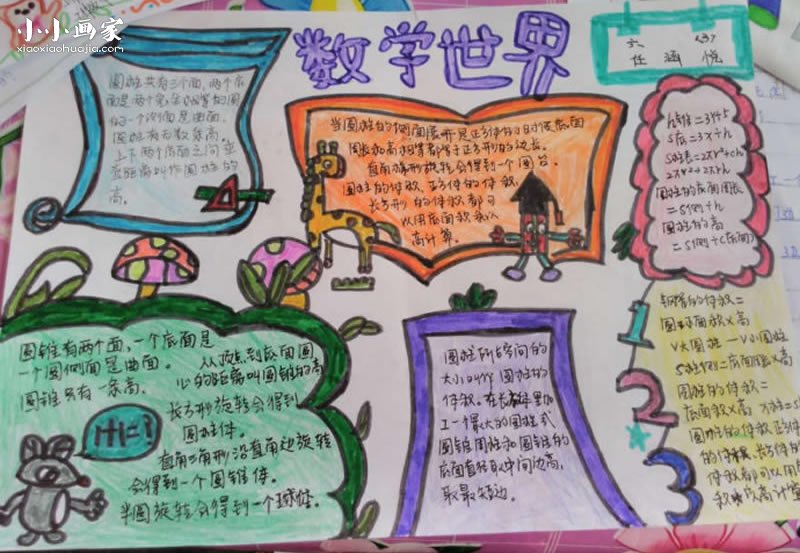 小小画家
xiaoxiaohuajia.com
数学世界
六
任涵悦
圆柱共有三个面，两个底
面是两个完全相等的圆
的一个侧面是曲面。
圆柱有无数条高。
上下两个底面之间
距离叫作圆柱的
高。
当圆柱的侧面展开是正方体的时候底面
周长和高相等都等于正方形的边长。
直角梯形旋转会得到一个圆台。
圆柱的体积，正方体的体积，
长方形的体积都可
以用底面积乘以
高计算。
S底=3×r
圆柱的底面周长
=S侧÷h
圆柱的高
=S侧÷C底面
圆锥有两个面，一个底面是
一个圆侧面是曲面。从顶点到底面圆
心的距离叫圆锥的高
圆锥只有一条高。
长方形旋转会得到
圆柱体。
直角三角形沿直角边旋转
会得到一个圆锥体。
半圆旋转会得到一个球体。
1+1=?
圆柱所占空间的
大小叫做圆柱的
体积。在长方体里加
工一个最大的圆柱或
圆锥圆柱和圆锥的
底面直径取中间边高，
取最短边。
1
2
3
钢管的体积=
圆环面积×高
V大圆柱－V小圆柱
S柱侧=底面周长×高
圆柱的体积=
底面积×高
圆柱的体积正方体
的体积
体积都可以用
积乘以高计算